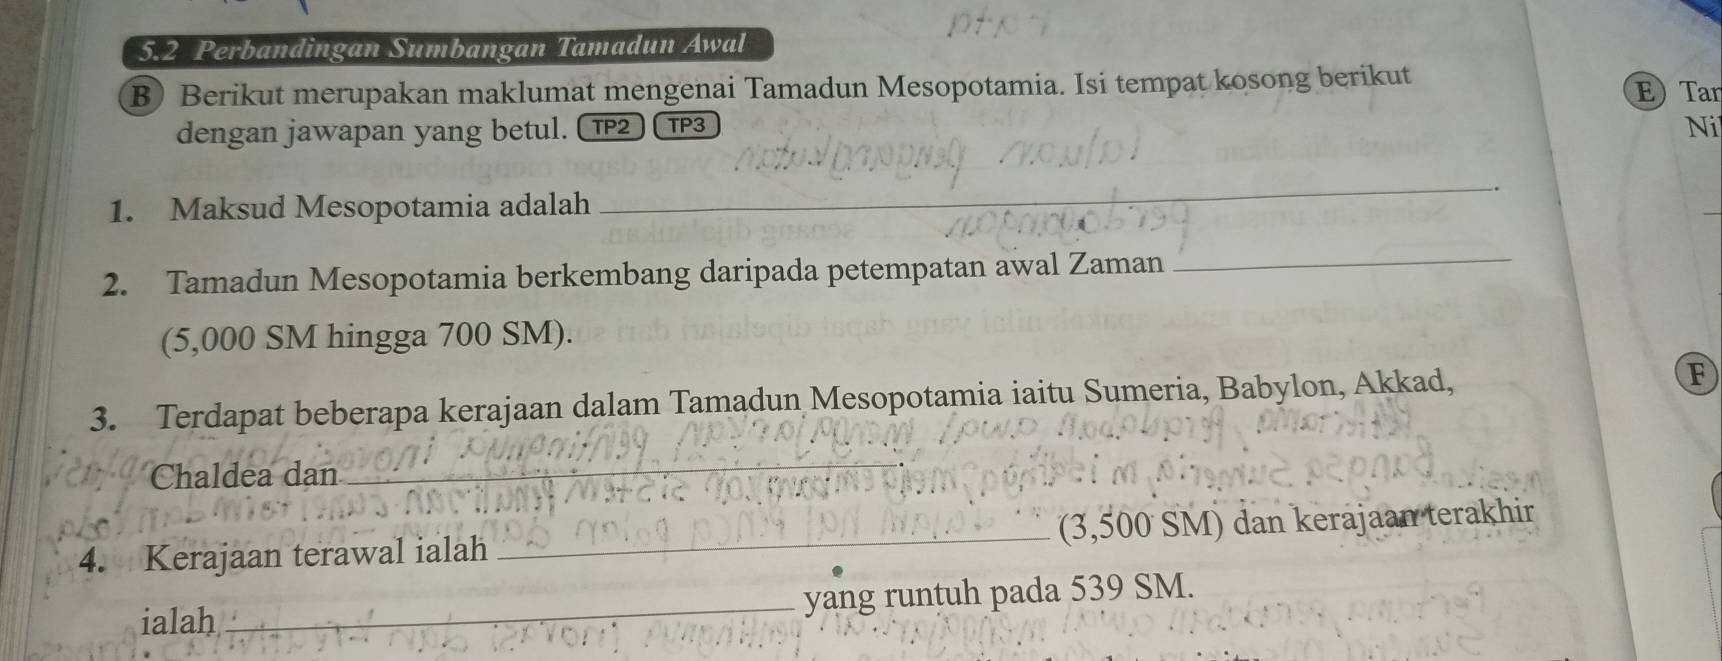 5.2 Perbandingan Sumbangan Tamadun Awal
B Berikut merupakan maklumat mengenai Tamadun Mesopotamia. Isi tempat kosong berikut
dengan jawapan yang betul. TP2 TP3
1. Maksud Mesopotamia adalah ______.
2. Tamadun Mesopotamia berkembang daripada petempatan awal Zaman ______
(5,000 SM hingga 700 SM).
3. Terdapat beberapa kerajaan dalam Tamadun Mesopotamia iaitu Sumeria, Babylon, Akkad,
Chaldea dan ______.
4. Kerajaan terawal ialah ______ (3,500 SM) dan kerajaan terakhir
ialah ______ yang runtuh pada 539 SM.
E
F